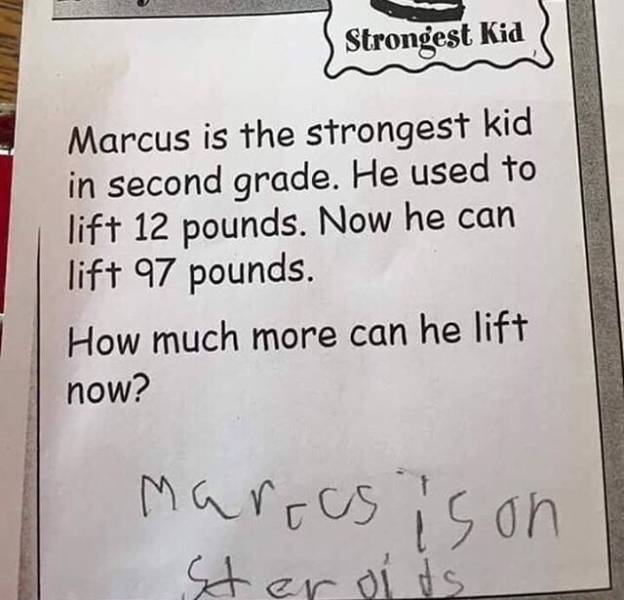 Strongest Kid
Marcus is the strongest kid
in second grade. He used to
lift 12 pounds. Now he can
lift 97 pounds.
How much more can he lift
now?
Marccs is on
steroids